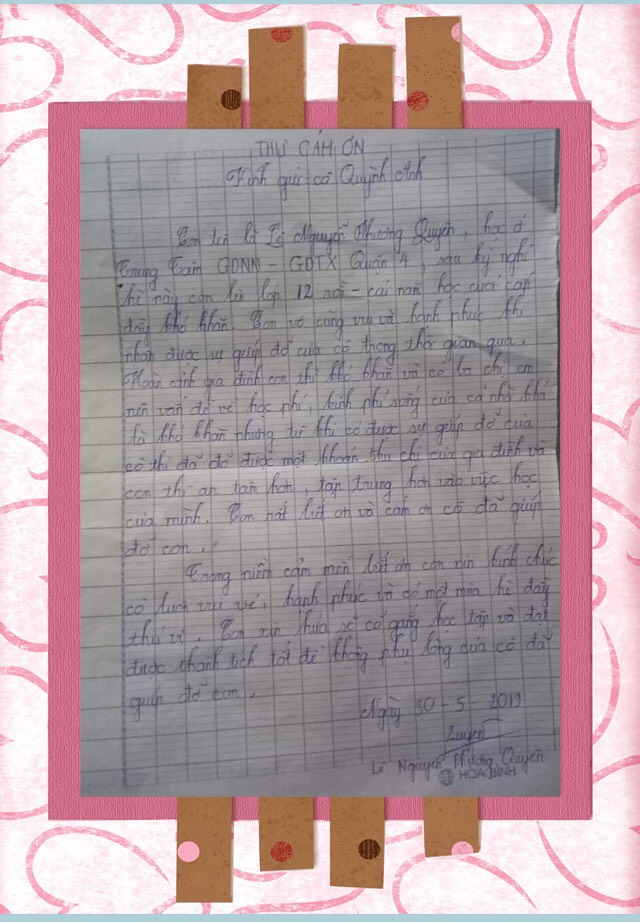 THƯ CẢM ƠN
Kính gửi cô Quỳnh Anh
Con tên là Lê Nguyễn Phương Quyên, học ở
Trung Tâm GDNN - GDTX Quận 4, sau kỳ nghỉ
hè này con lên lớp 12 rồi - cái năm học cuối cấp
đầy khó khăn. Con vô cùng vui và hạnh phúc khi
nhận được sự giúp đỡ của cô trong thời gian qua.
Hoàn cảnh gia đình con thì khó khăn và có ba chị em
nên vấn đề về học phí, kinh phí sống của cả nhà khá
là khó khăn nhưng từ khi có được sự giúp đỡ của
cô thì đã đỡ được một khoản thu chi của gia đình và
con thì an tâm hơn, tập trung hơn vào việc học
của mình. Con rất biết ơn và cảm ơn cô đã giúp
đỡ con.
Trong niềm cảm mến biết ơn con xin kính chúc
cô luôn vui vẻ, hạnh phúc và có một mùa hè đầy
thú vị. Con xin hứa sẽ cố gắng học tập và đạt
được thành tích tốt để không phụ lòng của cô đã
giúp đỡ con.
Ngày 30 - 5 - 2019
Quyên
Lê Nguyễn Phương Quyên
HÒA BÌNH